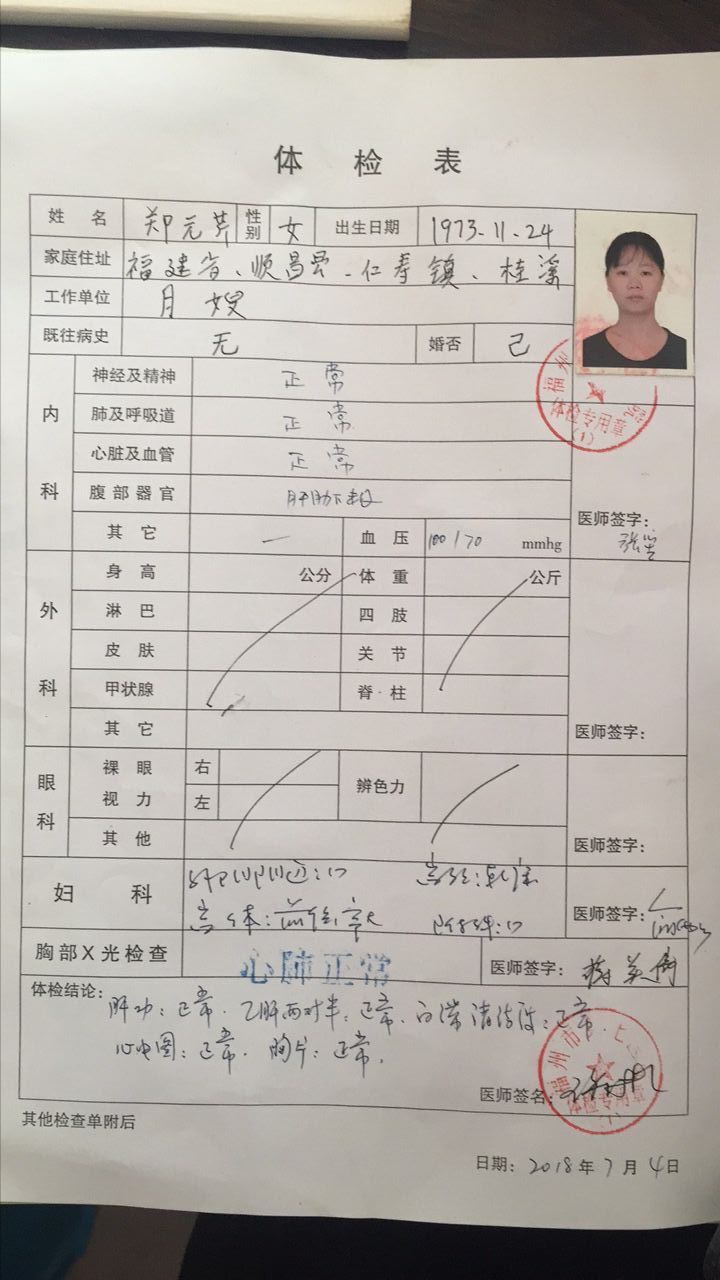 体 检 表
姓 名 郑元芹 性别 女 出生日期 1973.11.24
家庭住址 福建省、顺昌县、仁寿镇、桂溪
工作单位 月嫂
既往病史 无 婚否 已
内科 神经及精神 正常
肺及呼吸道 正常
心脏及血管 正常
腹部器官
其它 — 血压 100/70 mmhg 医师签字:
外科 身高 公分 体重 公斤
淋巴 四肢
皮肤 关节
甲状腺 脊柱
其它 医师签字:
眼科 裸眼视力 右 辨色力
左
其他 医师签字:
妇科 医师签字:
胸部X光检查 心肺正常 医师签字:
体检结论: 肝功:正常. 乙肝两对半:正常. 白带清洁度:正常.
心电图:正常. 胸片:正常.
福州市
体检专用章
(1)
医师签名:
其他检查单附后
日期: 2018年7月4日